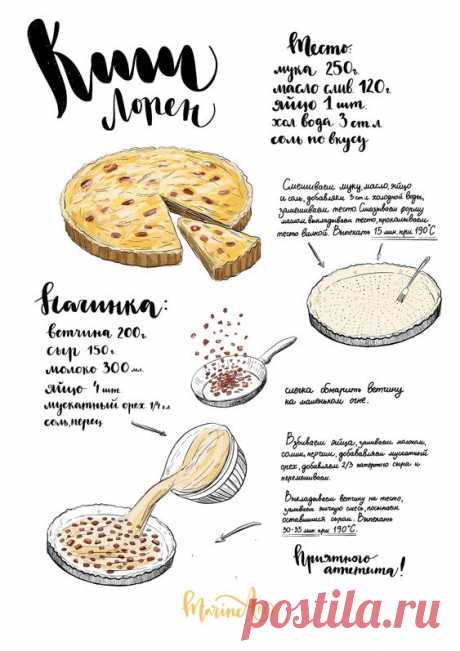 Киш
Лорен
Тесто:
мука 250г.
масло слив. 120г.
яйцо 1 шт.
хол вода 3 ст.л
соль по вкусу
Смешиваем муку, масло, яйцо
и соль, добавляем 3 ст.л холодной воды,
замешиваем тесто. Смазываем форму
маслом, выкладываем тесто, прокалываем
тесто вилкой. Выпекать 15 мин. при 190°C
Начинка:
ветчина 200г.
сыр 150г.
молоко 300 мл.
яйцо 4 шт.
мускатный орех 1/4 ч.л
соль, перец
слегка обжарить ветчину
на маленьком огне.
Взбиваем яйца, заливаем молоком,
солим, перчим, добавляем мускатный
орех, добавляем 2/3 натертого сыра и
перемешиваем.
Выкладываем ветчину на тесто,
заливаем яичную смесь, посыпаем
оставшимся сыром. Выпекать
30-35 мин. при 190°C.
Приятного
аппетита!
Marine
postila.ru